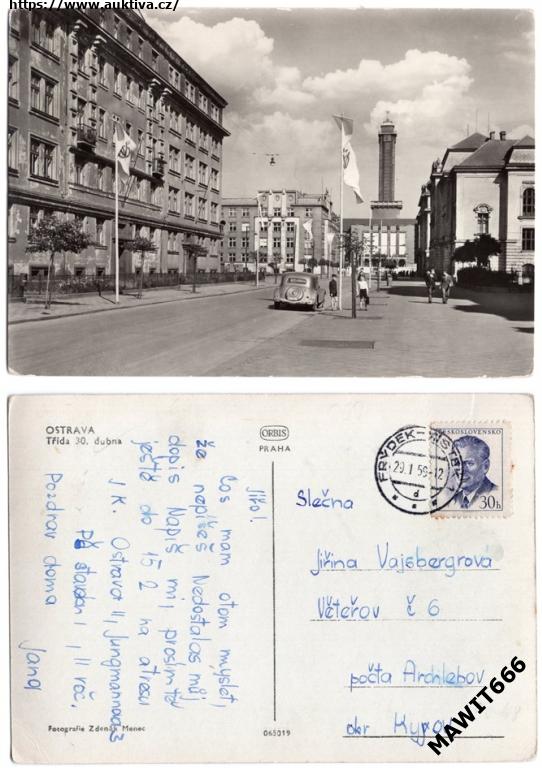 https://www.auktiva.cz/
OSTRAVA
Třída 30. dubna
ORBIS
PRAHA
FRÝDEK-MÍSTEK
29.1.59-12
d
ČESKOSLOVENSKO
30h
Jiko!
Cos mam otom myslet,
že nepíšeš Nedostalas můj
dopis Napiš mi, prosím tě
ještě do 15 2 na
J.K. Ostrava II, Jungmannova 3
II roč.
Pozdrav doma
Jana
Slečna
Jiřina Vajsbergrová
Věteřov č 6
počta Archlebov
okr Kyjov
Fotografie Zdeněk Menec
065019
MAWIT666